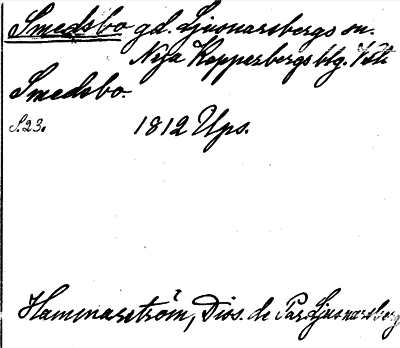 Smedsbo gd. Ljusnarsbergs sn.
Nya Kopparbergs blg. Vstl
Smedsbo.
S. 23. 1812 Ups.
Hammarström, Diss. de Par. Ljusnarsberg